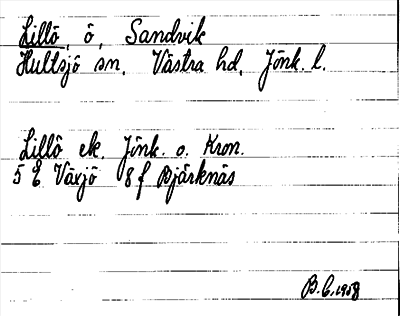 Lillö, ö, Sandvik
Hultsjö sn, Västra hd, Jönk. l.
Lillö ek. Jönk. o. Kron.
5 E Växjö 8 f Bjärknäs
B.C. 1958